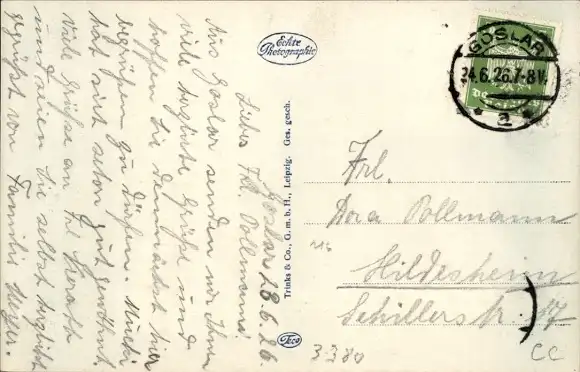 Goslar 23.6.26.
Liebes Frl. Pollmann!
Aus Goslar senden wir Ihnen
viele herzliche Grüße und
hoffen Sie demnächst hier
begrüßen zu dürfen. Mucki
hat sich schon gut gewöhnt.
Viele Grüße an Frl.
und seien Sie selbst herzlichst
gegrüßt von Familie Meyer.
Echte
Photographie
Trinks & Co., G. m. b. H., Leipzig. Ges. gesch.
Teco
GOSLAR
24.6.26.7-8V.
* a *
Frl.
Dora Pollmann
Hildesheim
Schillerstr. 17
3380
CC